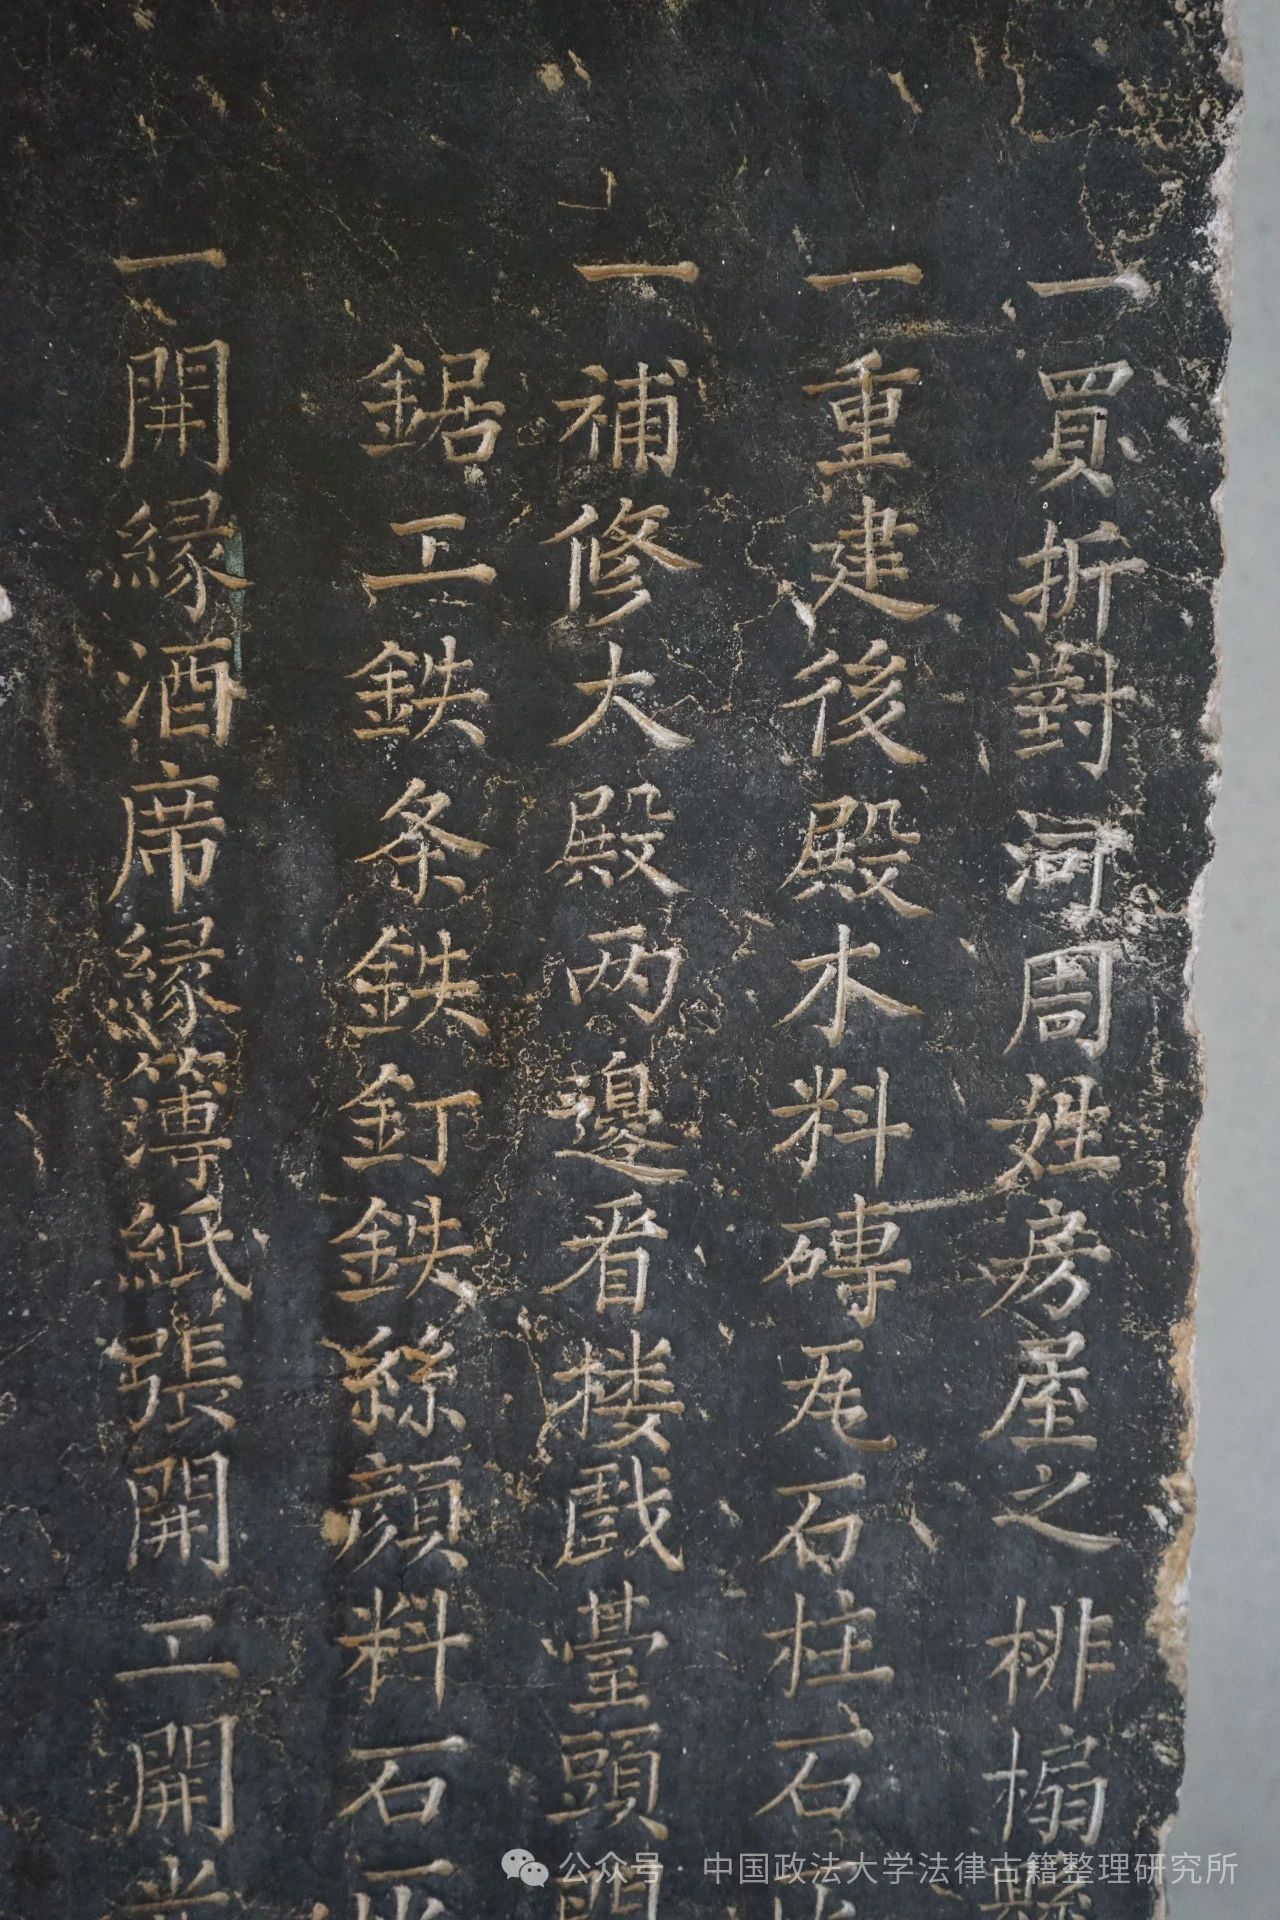 一買折對河周姓房屋之桃榻
一重建後殿木料磚瓦石柱石
一補修大殿两邊看楼戲臺頭門
鋸工鉄条鉄釘鉄絲顔料石
一開縁酒席縁簿紙張開工開
公众号·中国政法大学法律古籍整理研究所